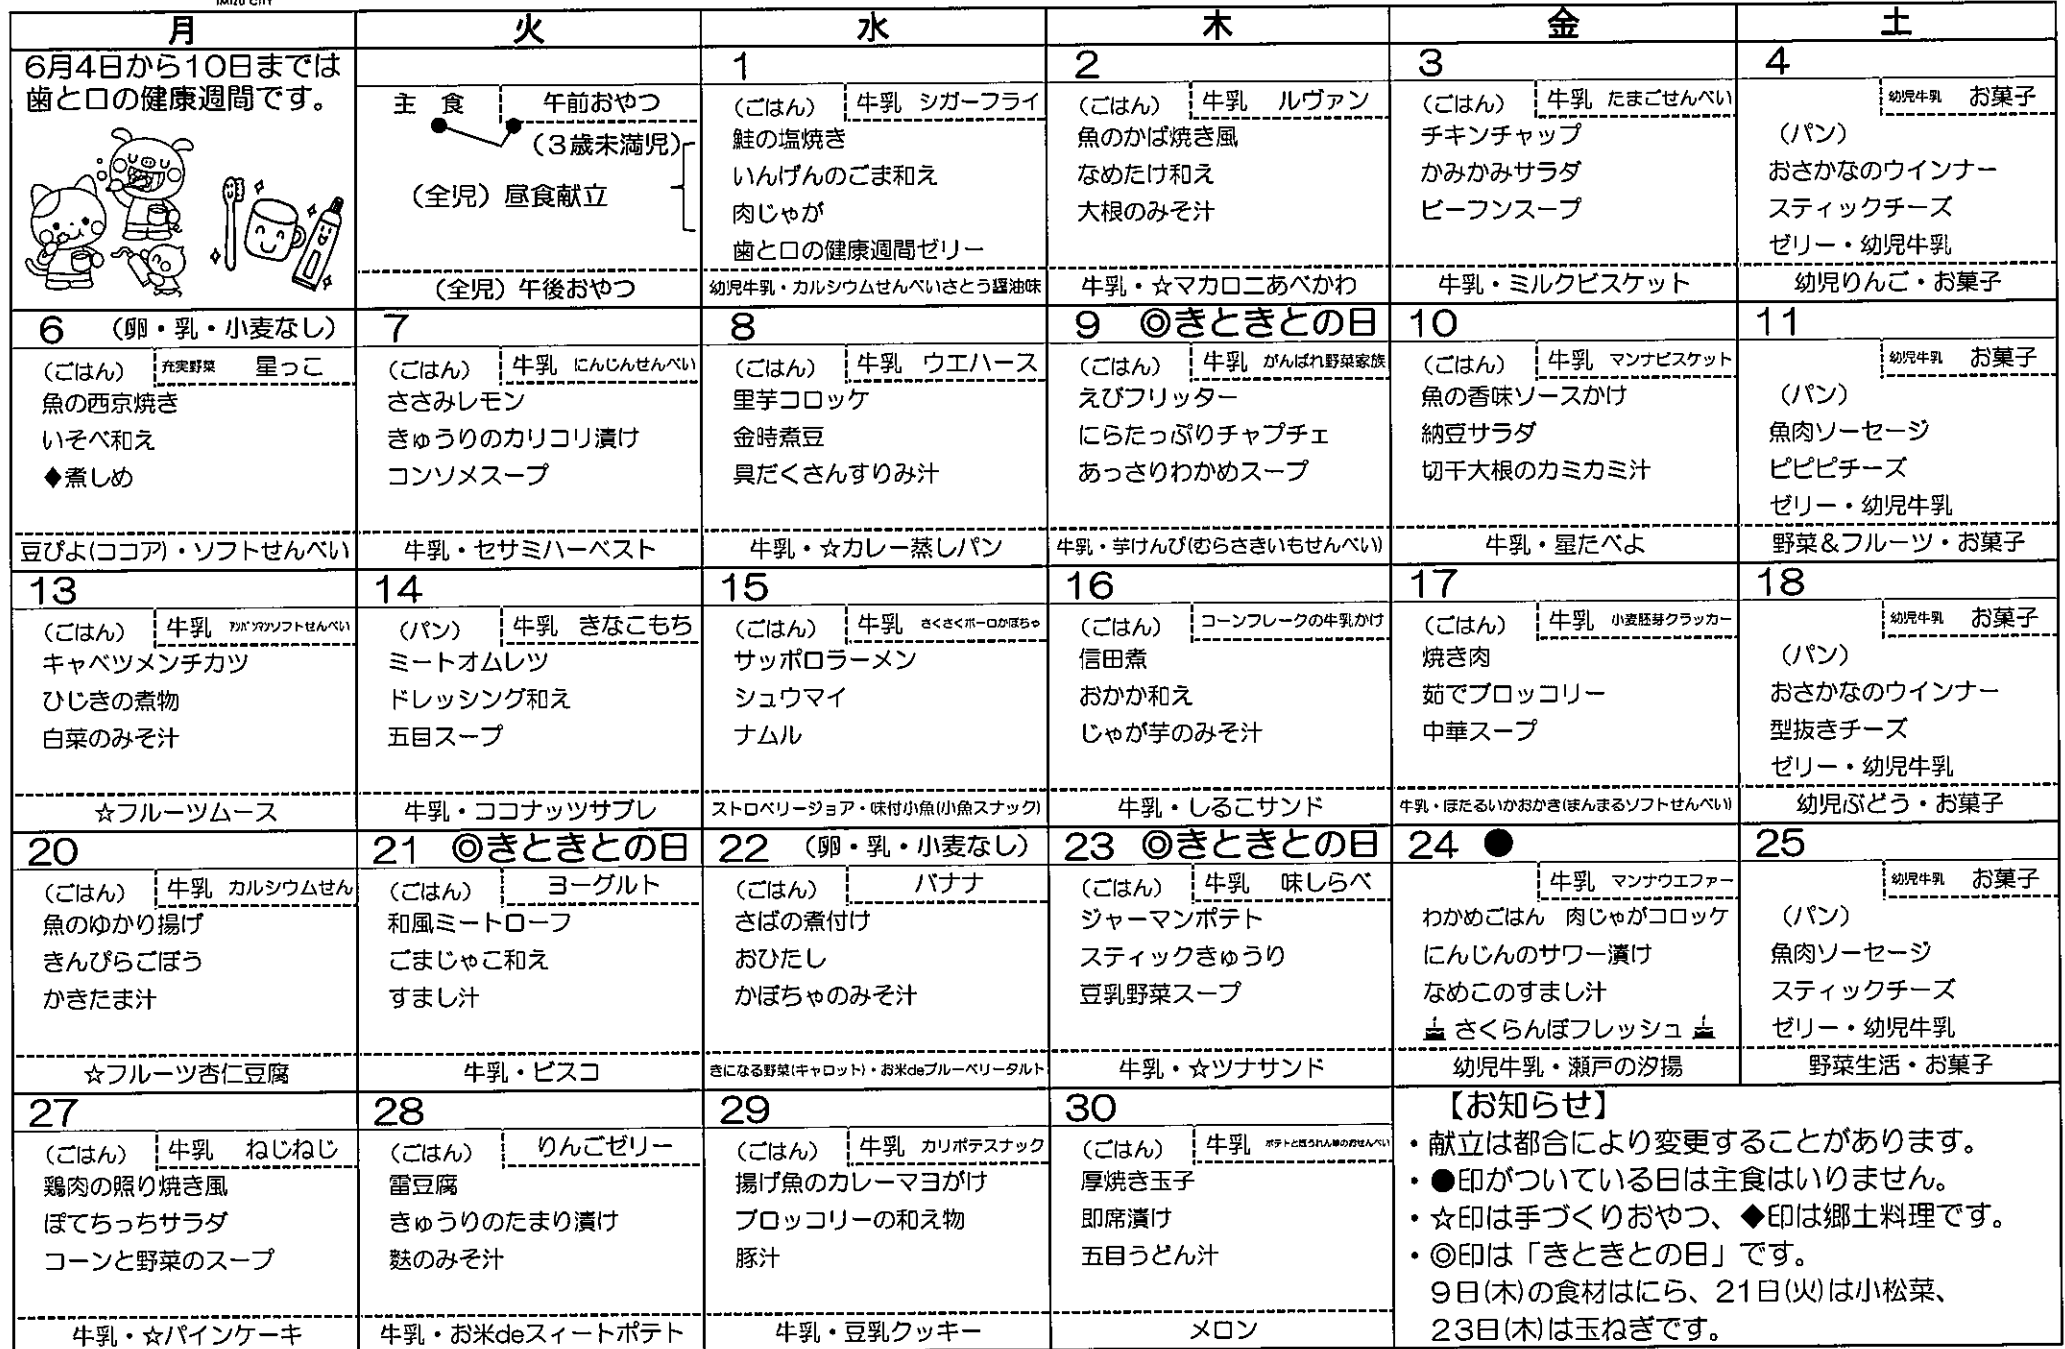 IMIZU CITY
月 火 水 木 金 土
6月4日から10日までは
歯と口の健康週間です。
主 食 午前おやつ
(3歳未満児)
(全児)昼食献立
(全児)午後おやつ
1
(ごはん) 牛乳 シガーフライ
鮭の塩焼き
いんげんのごま和え
肉じゃが
歯と口の健康週間ゼリー
幼児牛乳・カルシウムせんべいさとう醤油味
2
(ごはん) 牛乳 ルヴァン
魚のかば焼き風
なめたけ和え
大根のみそ汁
牛乳・☆マカロニあべかわ
3
(ごはん) 牛乳 たまごせんべい
チキンチャップ
かみかみサラダ
ビーフンスープ
牛乳・ミルクビスケット
4
幼児牛乳 お菓子
(パン)
おさかなのウインナー
スティックチーズ
ゼリー・幼児牛乳
幼児りんご・お菓子
6 (卵・乳・小麦なし)
(ごはん) 充実野菜 星っこ
魚の西京焼き
いそべ和え
◆煮しめ
豆ぴよ(ココア)・ソフトせんべい
7
(ごはん) 牛乳 にんじんせんべい
ささみレモン
きゅうりのカリコリ漬け
コンソメスープ
牛乳・セサミハーベスト
8
(ごはん) 牛乳 ウエハース
里芋コロッケ
金時煮豆
具だくさんすりみ汁
牛乳・☆カレー蒸しパン
9 ◎きときとの日
(ごはん) 牛乳 がんばれ野菜家族
えびフリッター
にらたっぷりチャプチェ
あっさりわかめスープ
牛乳・芋けんぴ(むらさきいもせんべい)
10
(ごはん) 牛乳 マンナビスケット
魚の香味ソースかけ
納豆サラダ
切干大根のカミカミ汁
牛乳・星たべよ
11
幼児牛乳 お菓子
(パン)
魚肉ソーセージ
ピピピチーズ
ゼリー・幼児牛乳
野菜&フルーツ・お菓子
13
(ごはん) 牛乳 アンパンマンソフトせんべい
キャベツメンチカツ
ひじきの煮物
白菜のみそ汁
☆フルーツムース
14
(パン) 牛乳 きなこもち
ミートオムレツ
ドレッシング和え
五目スープ
牛乳・ココナッツサブレ
15
(ごはん) 牛乳 さくさくボーロかぼちゃ
サッポロラーメン
シュウマイ
ナムル
ストロベリージョア・味付小魚(小魚スナック)
16
(ごはん) コーンフレークの牛乳かけ
信田煮
おかか和え
じゃが芋のみそ汁
牛乳・しるこサンド
17
(ごはん) 牛乳 小麦胚芽クラッカー
焼き肉
茹でブロッコリー
中華スープ
牛乳・ほたるいかおかき(まんまるソフトせんべい)
18
幼児牛乳 お菓子
(パン)
おさかなのウインナー
型抜きチーズ
ゼリー・幼児牛乳
幼児ぶどう・お菓子
20
(ごはん) 牛乳 カルシウムせん
魚のゆかり揚げ
きんぴらごぼう
かきたま汁
☆フルーツ杏仁豆腐
21 ◎きときとの日
(ごはん) ヨーグルト
和風ミートローフ
ごまじゃこ和え
すまし汁
牛乳・ビスコ
22 (卵・乳・小麦なし)
(ごはん) バナナ
さばの煮付け
おひたし
かぼちゃのみそ汁
きになる野菜(キャロット)・お米deブルーベリータルト
23 ◎きときとの日
(ごはん) 牛乳 味しらべ
ジャーマンポテト
スティックきゅうり
豆乳野菜スープ
牛乳・☆ツナサンド
24 ●
牛乳 マンナウエファー
わかめごはん 肉じゃがコロッケ
にんじんのサワー漬け
なめこのすまし汁
さくらんぼフレッシュ
幼児牛乳・瀬戸の汐揚
25
幼児牛乳 お菓子
(パン)
魚肉ソーセージ
スティックチーズ
ゼリー・幼児牛乳
野菜生活・お菓子
27
(ごはん) 牛乳 ねじねじ
鶏肉の照り焼き風
ぽてちっちサラダ
コーンと野菜のスープ
牛乳・☆パインケーキ
28
(ごはん) りんごゼリー
雷豆腐
きゅうりのたまり漬け
麩のみそ汁
牛乳・お米deスィートポテト
29
(ごはん) 牛乳 カリポテスナック
揚げ魚のカレーマヨがけ
ブロッコリーの和え物
豚汁
牛乳・豆乳クッキー
30
(ごはん) 牛乳 ポテトとほうれん草のおせんべい
厚焼き玉子
即席漬け
五目うどん汁
メロン
【お知らせ】
・献立は都合により変更することがあります。
・●印がついている日は主食はいりません。
・☆印は手づくりおやつ、◆印は郷土料理です。
・◎印は「きときとの日」です。
9日(木)の食材はにら、21日(火)は小松菜、
23日(木)は玉ねぎです。